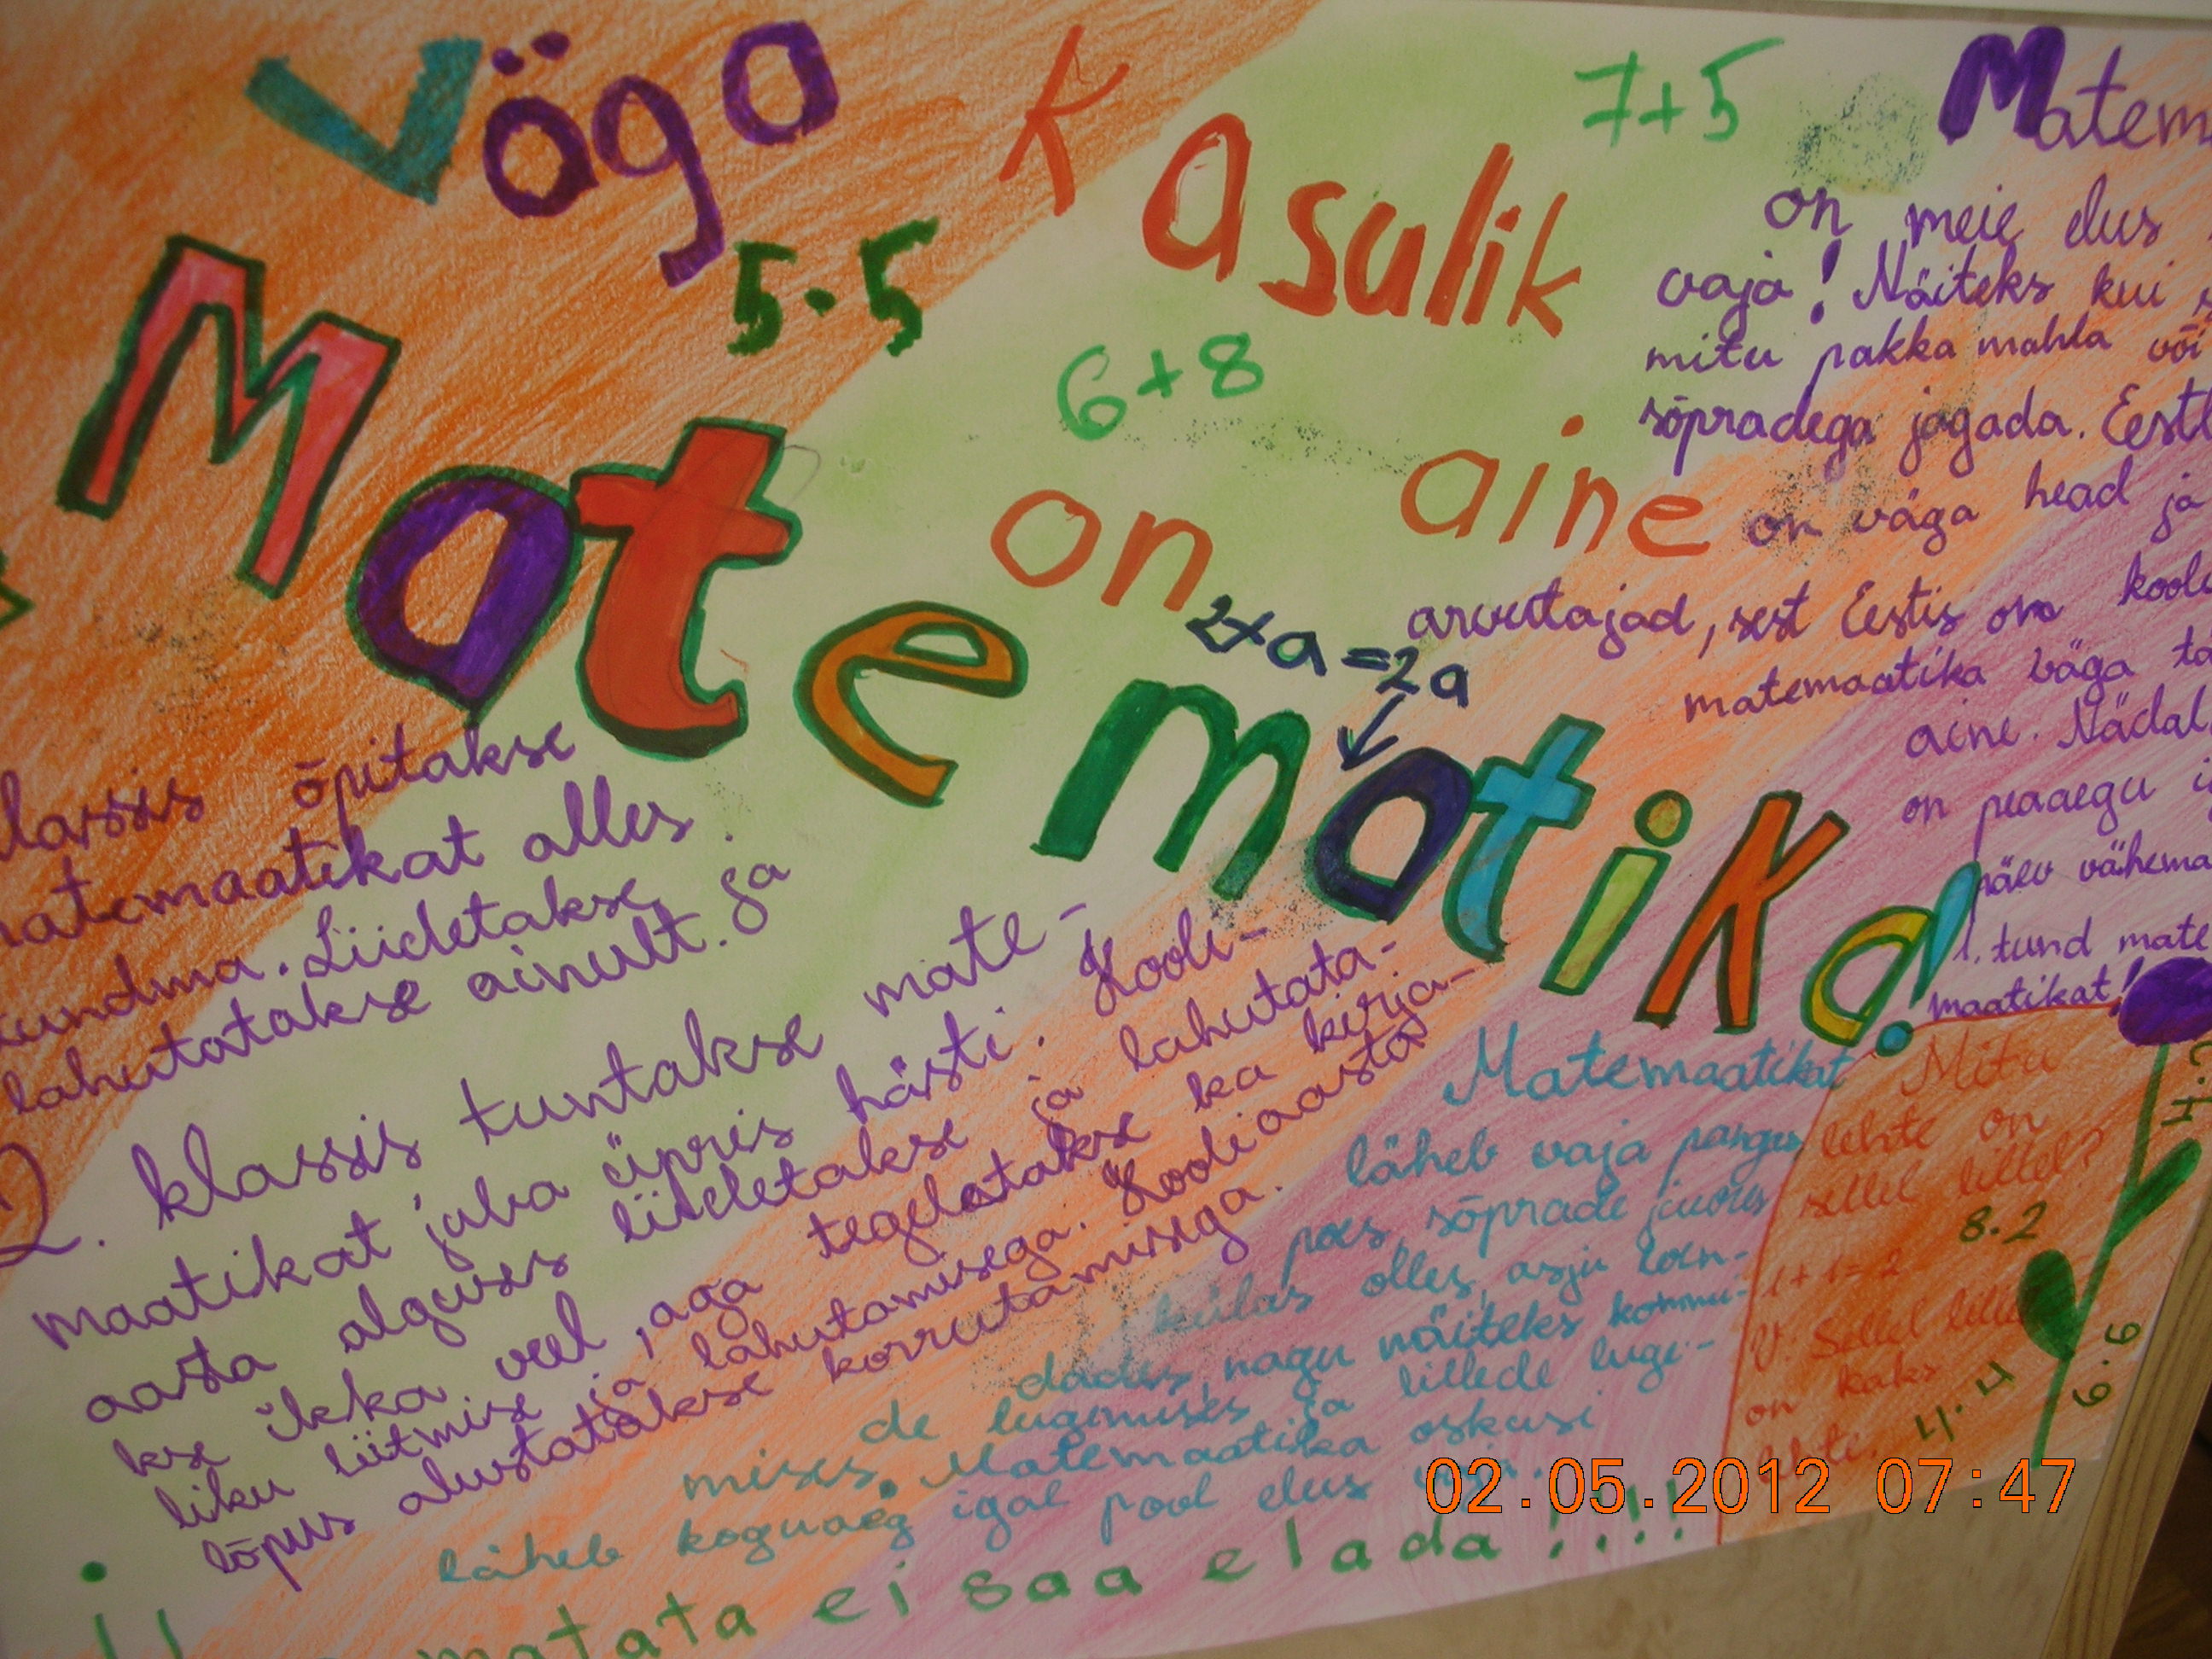 Väga
Kasulik
7+5
5·5
6+8
on
aine
2×a=2a
Matematika!
Matem
on meie elus
vaja! Näiteks kui
mitu pakka mahla või
sõpradega jagada. Eestl
on väga head ja
arvutajad, sest Eestis on kooli
matemaatika väga tä
aine. Nädal
on peaaegu i
päev vähema
1. tund mate
maatikat!
lassis õpitakse
matemaatikat alles
tundma. Liidetakse
lahutatakse ainult. ja
2. klassis tuntakse mate-
maatikat juba üpris hästi. Kooli-
aasta alguses liidetakse ja lahutata-
kse ikka veel, aga tegeletakse ka kirja-
liku liitmise ja lahutamisega. Kooliaasta
lõpus alustatakse korrutamisega.
Matemaatikat
läheb vaja pangas
poes, sõprade juures
külas olles, asju loen-
dades, nagu näiteks kommi-
de lugemises ja lillede luge-
mises. Matemaatika oskusi
läheb koguaeg igal pool elus
Mitu
lehte on
sellel lillel?
8·2
1+1=2
V: Sellel lillel
on kaks
lehte.
4·4
6·6
matata ei saa elada!!!!
02.05.2012 07:47